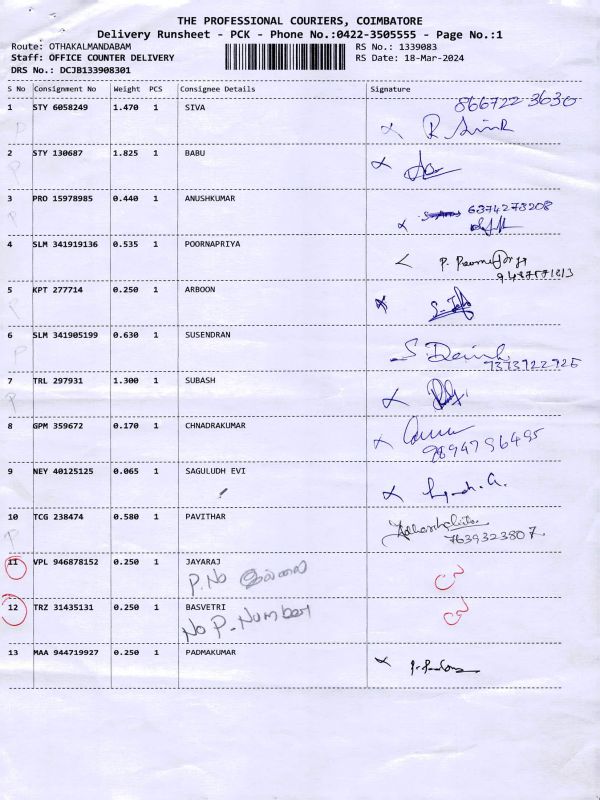 THE PROFESSIONAL COURIERS, COIMBATORE
Delivery Runsheet - PCK - Phone No.:0422-3505555 - Page No.:1
Route: OTHAKALMANDABAM RS No.: 1339083
Staff: OFFICE COUNTER DELIVERY RS Date: 18-Mar-2024
DRS No.: DCJB133908301
S No Consignment No Weight PCS Consignee Details Signature
1 STY 6058249 1.470 1 SIVA 866722 3630
P
2 STY 130687 1.825 1 BABU
P
3 PRO 15978985 0.440 1 ANUSHKUMAR 6374273208
P
4 SLM 341919136 0.535 1 POORNAPRIYA
P
5 KPT 277714 0.250 1 ARBOON
P
6 SLM 341905199 0.630 1 SUSENDRAN
P 7373922925
7 TRL 297931 1.300 1 SUBASH
P
8 GPM 359672 0.170 1 CHNADRAKUMAR
9894796495
9 NEY 40125125 0.065 1 SAGULUDH EVI
10 TCG 238474 0.580 1 PAVITHAR
P 7639323807
11 VPL 946878152 0.250 1 JAYARAJ
P.No இல்லை
12 TRZ 31435131 0.250 1 BASVETRI
No P-Number
13 MAA 944719927 0.250 1 PADMAKUMAR